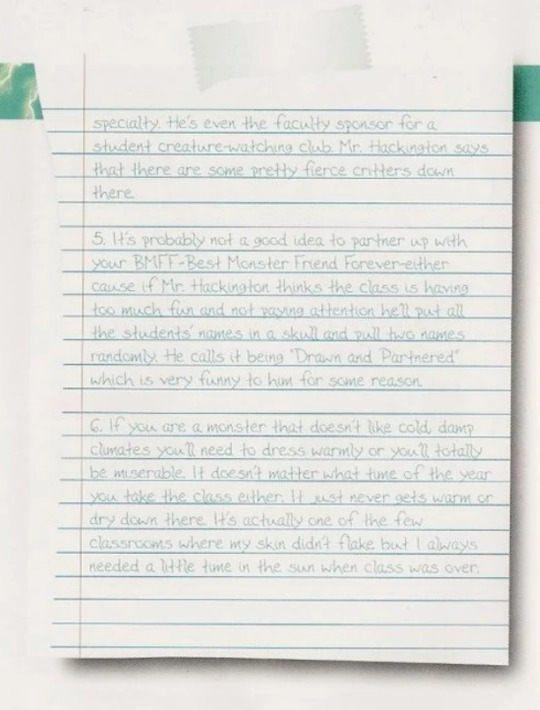 specialty. He's even the faculty sponsor for a
student creature-watching club. Mr. Hackington says
that there are some pretty fierce critters down
there.
5. It's probably not a good idea to partner up with
your BMFF-Best Monster Friend Forever-either
cause if Mr. Hackington thinks the class is having
too much fun and not paying attention he'll put all
the students' names in a skull and pull two names
randomly. He calls it being "Drawn and Partnered"
which is very funny to him for some reason.
6. If you are a monster that doesn't like cold, damp
climates you'll need to dress warmly or you'll totally
be miserable. It doesn't matter what time of the year
you take the class either. It just never gets warm or
dry down there. It's actually one of the few
classrooms where my skin didn't flake but I always
needed a little time in the sun when class was over.